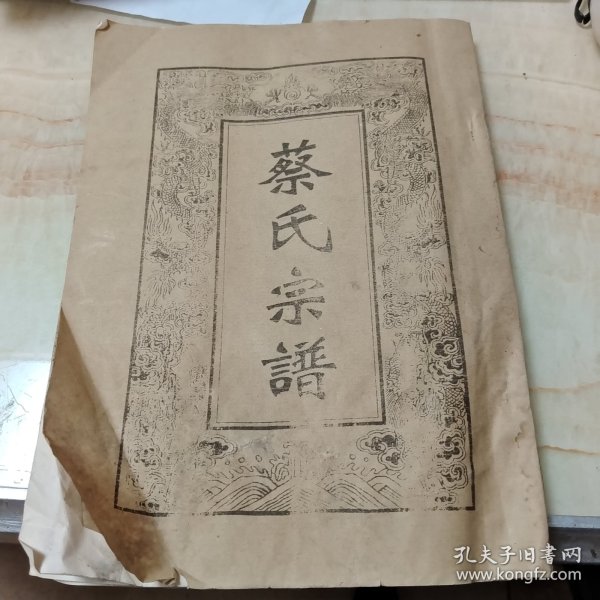 蔡氏宗譜
孔夫子旧書网
www.kongfz.com